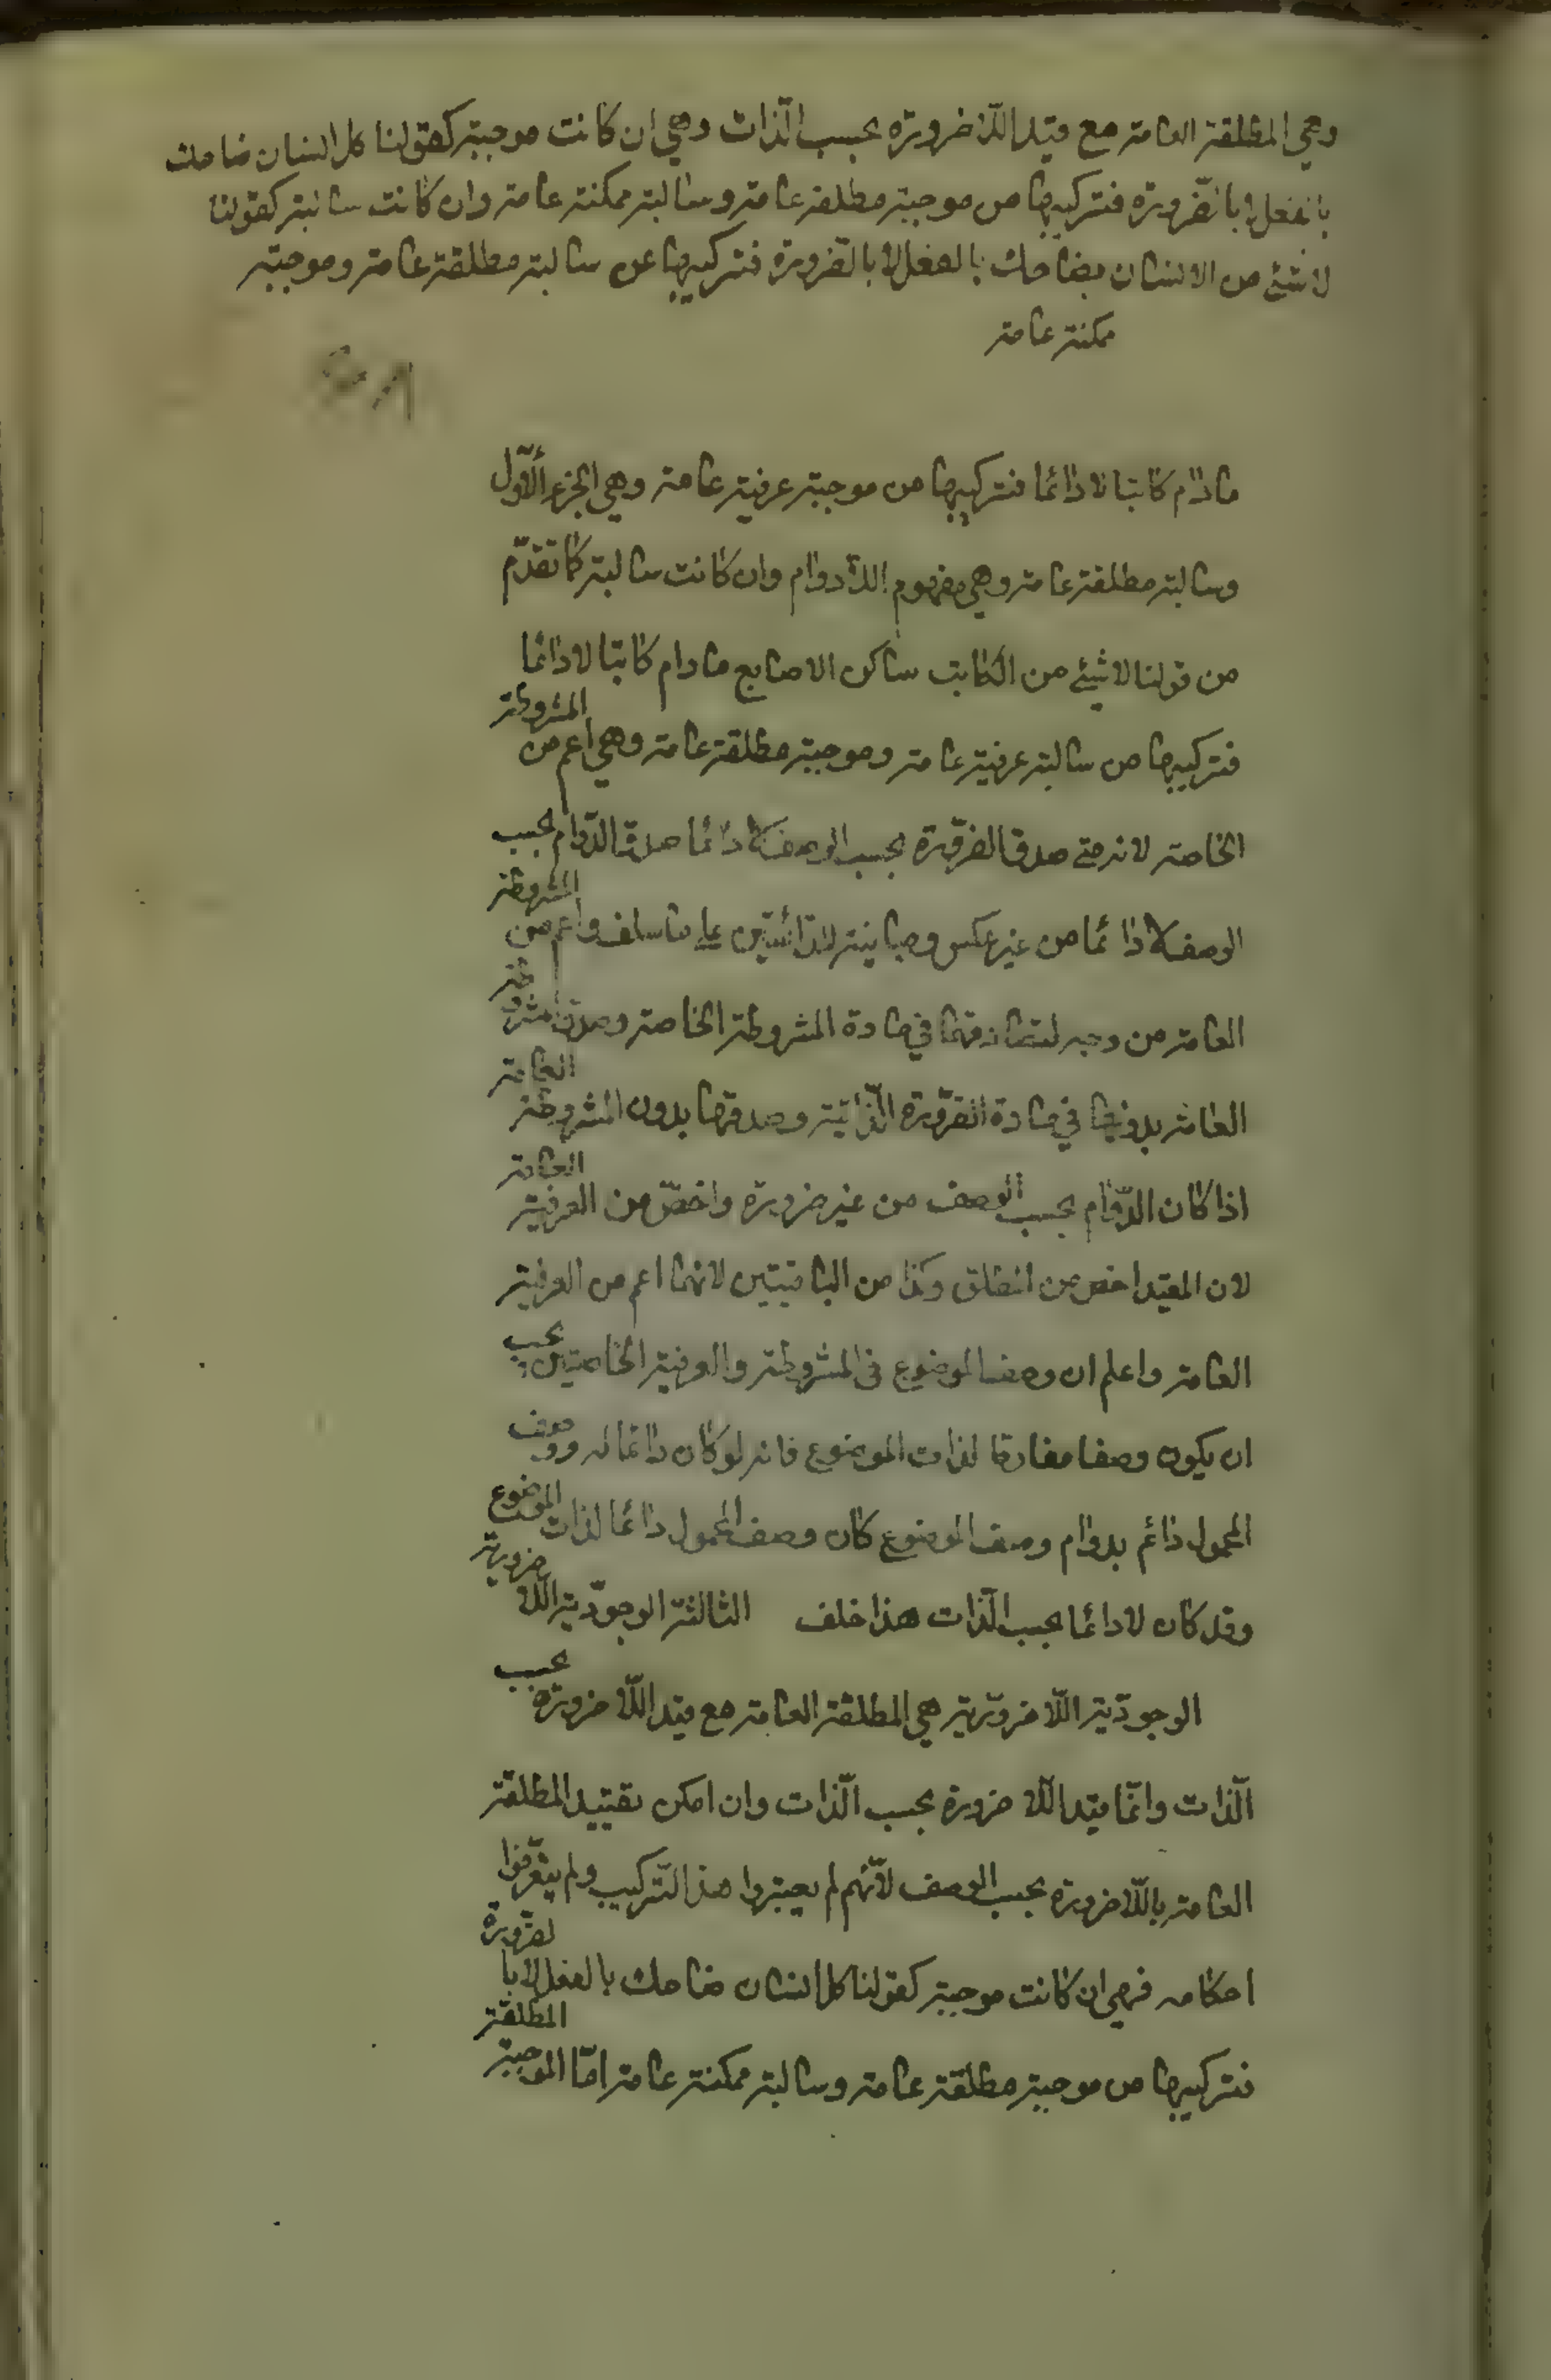 وهي المطلقة العامة مع قيد اللاضرورة بحسب الذات وهي ان كانت موجبة كقولنا كل انسان ضاحك
بالفعل لا بالضرورة فتركيبها من موجبة مطلقة عامة وسالبة ممكنة عامة وان كانت سالبة كقولنا
لا شئ من الانسان بضاحك بالفعل لا بالضرورة فتركيبها من سالبة مطلقة عامة وموجبة
ممكنة عامة
مادام كاتبا لا دائما فتركيبها من موجبة عرفية عامة وهي الجزء الاول
وسالبة مطلقة عامة وهي مفهوم اللادوام وان كانت سالبة كما تقدّم
من قولنا لا شئ من الكاتب ساكن الاصابع مادام كاتبا لا دائما
فتركيبها من سالبة عرفية عامة وموجبة مطلقة عامة وهي اعم من المشروطة
الخاصة لانه متى صدق الضرورة بحسب الوصف لا دائما صدق الدّوام بحسب
الوصف لا دائما من غير عكس ومباينة للدائمتين على ما سلف واعم من المشروطة
العامة من وجه لتصادقهما في مادة المشروطة الخاصة وصدق المشروطة
العامة بدونها في مادة الضرورة الذاتية وصدقها بدون المشروطة العامة
اذا كان الدّوام بحسب الوصف من غير ضرورة واخصّ من العرفية العامة
لان المقيد اخص من المطلق وكذا من الباقيتين لانهما اعم من العرفية
العامة واعلم ان وصف الموضوع في المشروطة والعرفية الخاصتين يجب
ان يكون وصفا مفارقا لذات الموضوع فانه لو كان دائما له ووصف
المحمول دائم بدوام وصف الموضوع كان وصف المحمول دائما لذات الموضوع
وقد كان لا دائما بحسب الذات هذا خلف الثالثة الوجوديّة اللاضرورية
الوجوديّة اللاضروريّة هي المطلقة العامة مع قيد اللاضرورة بحسب
الذات وانّما قيد اللاضرورة بحسب الذات وان امكن تقييد المطلقة
العامة باللاضرورة بحسب الوصف لانّهم لم يعتبروا هذا التّركيب ولم يتعرّفوا
احكامه فهي ان كانت موجبة كقولنا كل انسان ضاحك بالفعل لا بالضرورة
فتركيبها من موجبة مطلقة عامة وسالبة ممكنة عامة امّا الموجبة المطلقة